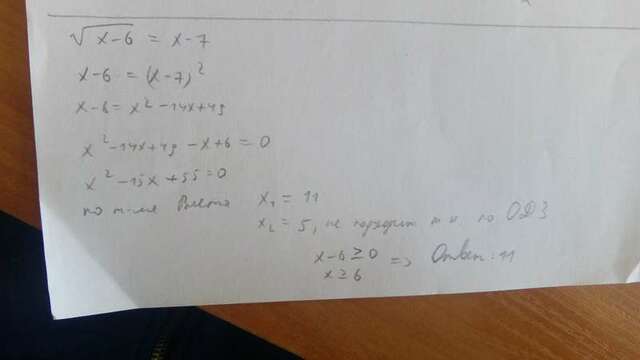 √x-6 = x-7
x-6 = (x-7)²
x-6 = x² -14x+49
x² -14x+49 -x+6 = 0
x² -15x +55=0
по т-ме Виета x₁ = 11
x₂ = 5, не подходит т к по ОДЗ
x-6 ≥ 0 => Ответ: 11
x ≥ 6